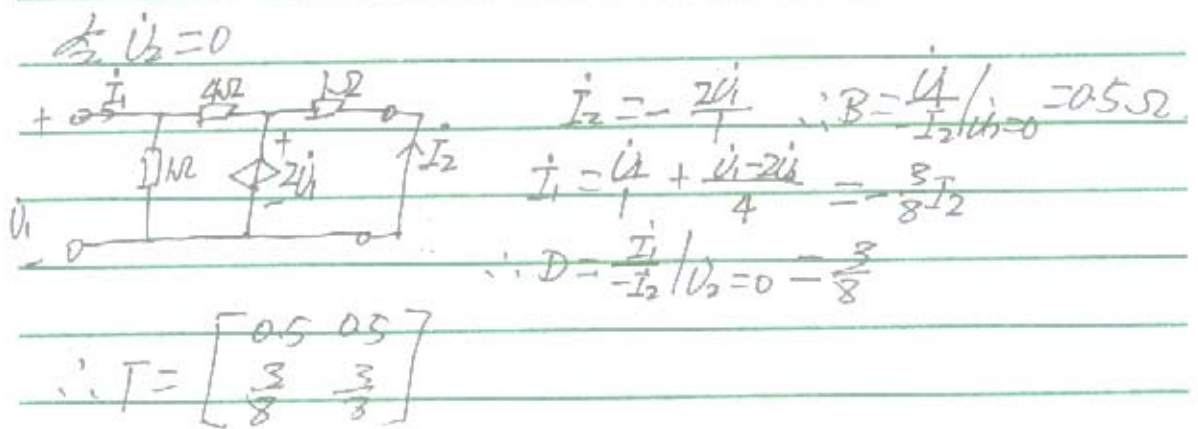 令 U̇₂=0
İ₁ 4Ω 1Ω
+ 1Ω + 2U̇₁ - İ₂
U̇₁ -
İ₂ = - 2U̇₁/1 ∴ B = U̇₁/-İ₂ | U̇₂=0 = 0.5Ω
İ₁ = U̇₁/1 + U̇₁-2U̇₁/4 = -3/8 I₂
∴ D = İ₁/-İ₂ | U̇₂=0 = 3/8
∴ T = [0.5 0.5
3/8 3/3]